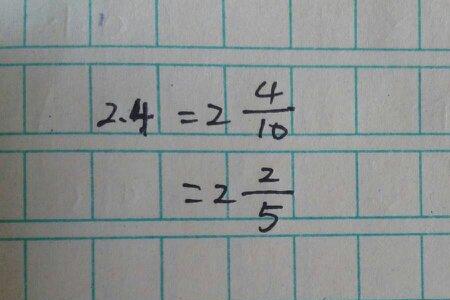 2.4 = 2 4/10
= 2 2/5